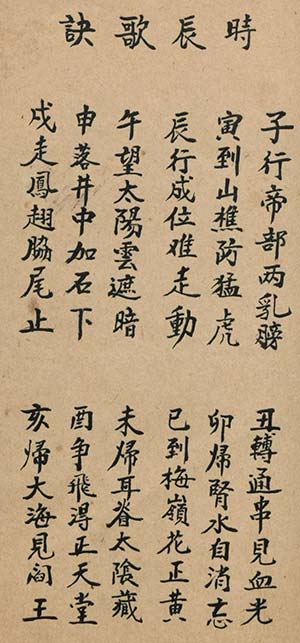 時辰歌訣
子行帝部两乳膀
丑轉通串見血光
寅到山樵防猛虎
卯帰腎水自消忘
辰行成位难走動
巳到梅嶺花正黄
午望太陽雲遮暗
未帰耳脊太陰藏
申落井中加石下
酉争飛淂正天堂
戌走鳳翅脇尾止
亥帰大海見阎王